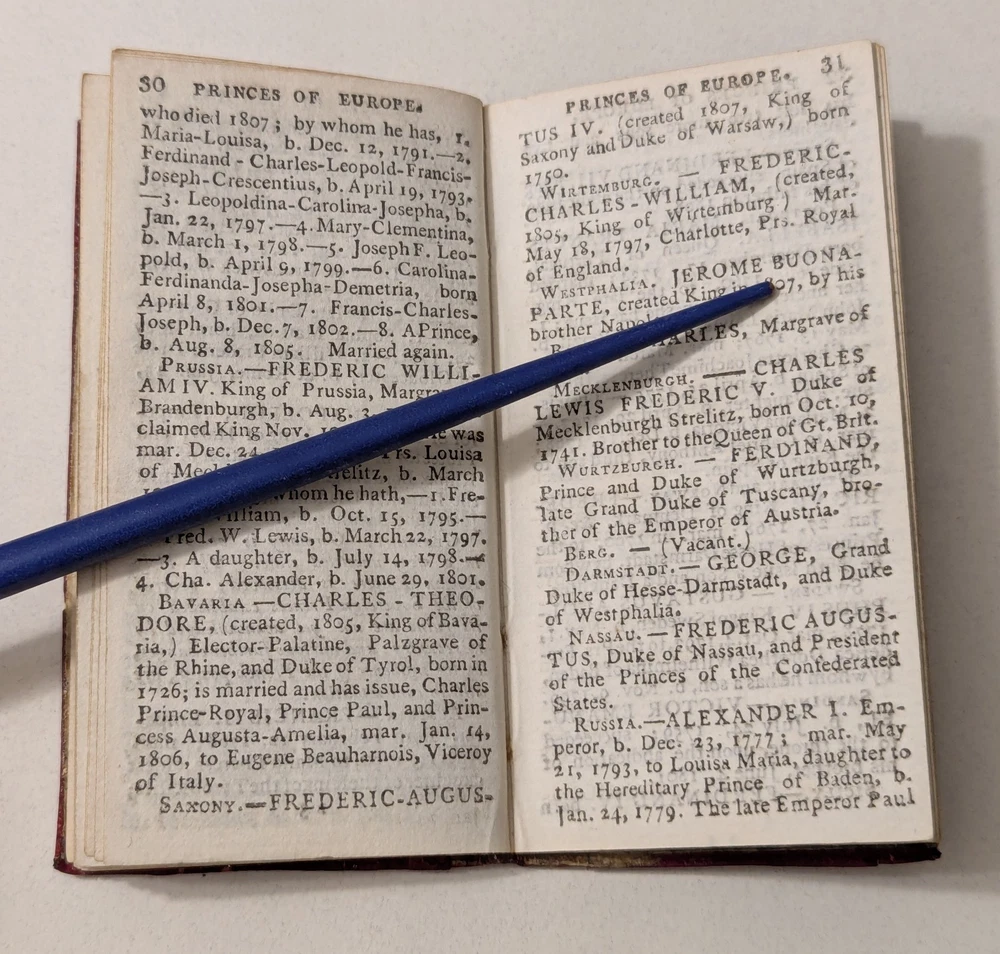 30 PRINCES OF EUROPE.
who died 1807; by whom he has, 1.
Maria-Louisa, b. Dec. 12, 1791.—2.
Ferdinand - Charles-Leopold-Francis-
Joseph-Crescentius, b. April 19, 1793.
—3. Leopoldina-Carolina-Josepha, b.
Jan. 22, 1797.—4. Mary-Clementina,
b. March 1, 1798.—5. Joseph F. Leo-
pold, b. April 9, 1799.—6. Carolina-
Ferdinanda-Josepha-Demetria, born
April 8, 1801.—7. Francis-Charles-
Joseph, b. Dec. 7, 1802.—8. A Prince,
b. Aug. 8, 1805. Married again.
PRUSSIA.—FREDERIC WILLI-
AM IV. King of Prussia,
Brandenburgh, b. Aug. 3,
claimed King Nov. was
mar. Dec. 24, Prs. Louisa
of b. March
whom he hath,—1. Fre-
b. Oct. 15, 1795.—
Fred. W. Lewis, b. March 22, 1797.
—3. A daughter, b. July 14, 1798.—
4. Cha. Alexander, b. June 29, 1801.
BAVARIA —CHARLES - THEO-
DORE, (created, 1805, King of Bava-
ria,) Elector-Palatine, Palzgrave of
the Rhine, and Duke of Tyrol, born in
1726; is married and has issue, Charles
Prince-Royal, Prince Paul, and Prin-
cess Augusta-Amelia, mar. Jan. 14,
1806, to Eugene Beauharnois, Viceroy
of Italy.
SAXONY.—FREDERIC-AUGUS-
PRINCES OF EUROPE. 31
TUS IV. (created 1807, King of
Saxony and Duke of Warsaw,) born
1750.
WIRTEMBURG. — FREDERIC-
CHARLES-WILLIAM, (created,
1805, King of Wirtemburg) Mar.
May 18, 1797, Charlotte, Prs. Royal
of England.
WESTPHALIA. JEROME BUONA-
PARTE, created King in 1807, by his
brother
CHARLES, Margrave of
MECKLENBURGH. — CHARLES
LEWIS FREDERIC V. Duke of
Mecklenburgh Strelitz, born Oct. 10,
1741. Brother to the Queen of Gt. Brit.
WURTZBURGH. — FERDINAND,
Prince and Duke of Wurtzburgh,
late Grand Duke of Tuscany, bro-
ther of the Emperor of Austria.
BERG. — (Vacant.)
DARMSTADT.— GEORGE, Grand
Duke of Hesse-Darmstadt, and Duke
of Westphalia.
NASSAU. — FREDERIC AUGUS-
TUS, Duke of Nassau, and President
of the Princes of the Confederated
States.
RUSSIA.—ALEXANDER I. Em-
peror, b. Dec. 23, 1777; mar. May
21, 1793, to Louisa Maria, daughter to
the Hereditary Prince of Baden, b.
Jan. 24, 1779. The late Emperor Paul